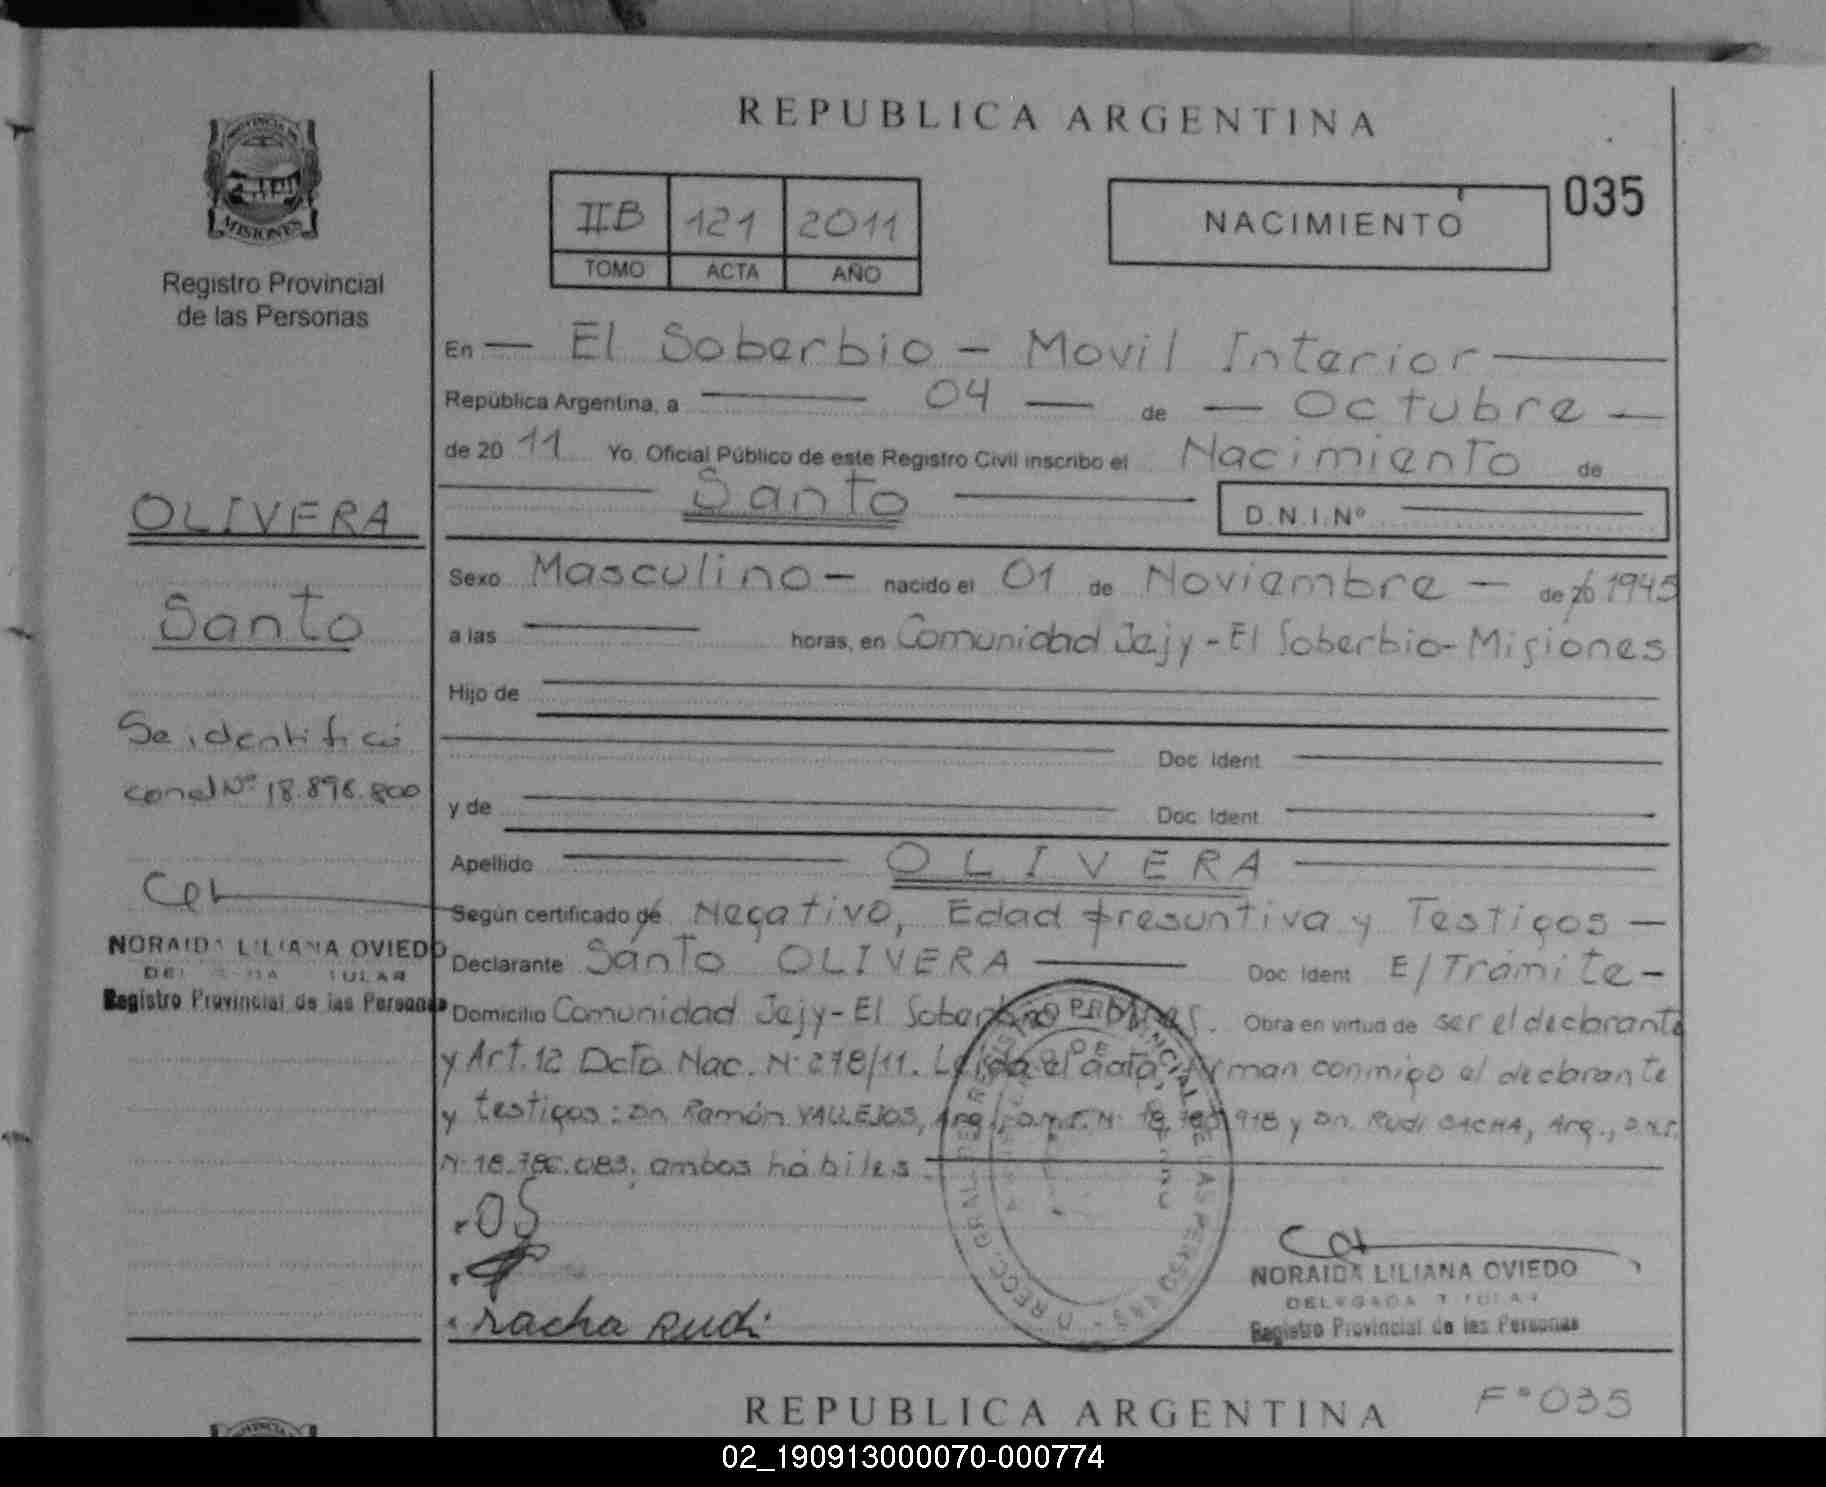 REPUBLICA ARGENTINA
PROVINCIA DE
MISIONES
Registro Provincial
de las Personas
IIB 121 2011
TOMO ACTA AÑO
NACIMIENTO
035
En — El Soberbio - Movil Interior
República Argentina, a 04 — de — Octubre —
de 20 11 Yo, Oficial Público de este Registro Civil inscribo el Nacimiento de
Santo
D.N.I.Nº
OLIVERA
Santo
Se identificó
con el Nº 18.896.800
NORAIDA LILIANA OVIEDO
Registro Provincial de las Personas
Sexo Masculino — nacido el 01 de Noviembre — de 1945
a las horas, en Comunidad Jejy - El Soberbio - Misiones
Hijo de
Doc. Ident.
y de
Doc. Ident.
Apellido OLIVERA
Según certificado de Negativo, Edad presuntiva y Testigos —
Declarante Santo OLIVERA Doc. Ident. E/Trámite -
Domicilio Comunidad Jejy - El Soberbio Obra en virtud de ser el declarante
y Art. 12 Dcto. Nac. Nº 278/11. Leída el acta, firman conmigo el declarante
y testigos: Dn. Ramón VALLEJOS, Arg., D.N.I. Nº y Dn. Rudi SACHA, Arg., D.N.I.
Nº ambos hábiles.
OS
racha Rudi
NORAIDA LILIANA OVIEDO
DELEGADA TITULAR
Registro Provincial de las Personas
REPUBLICA ARGENTINA
Fº 035
02_190913000070-000774